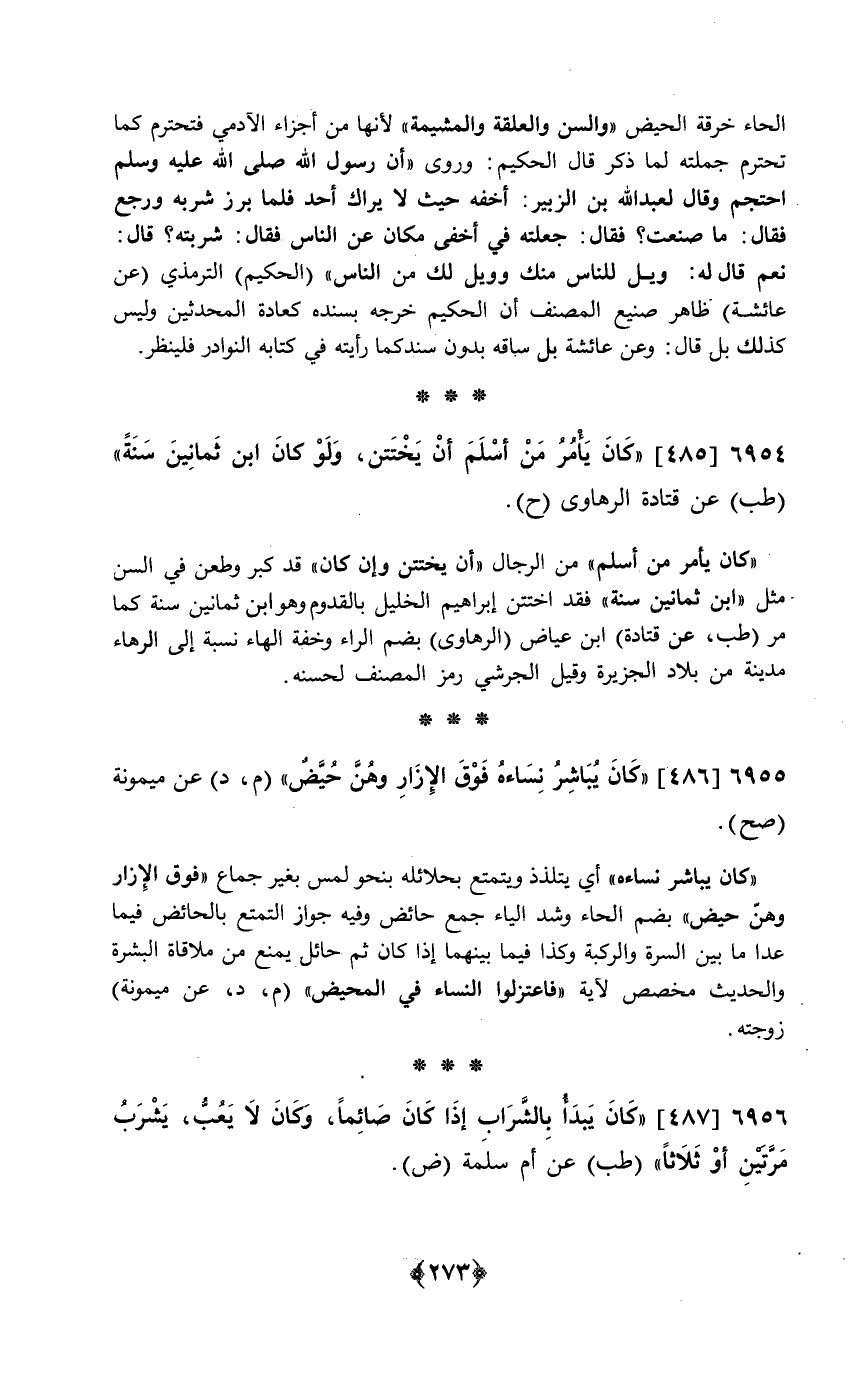 الحاء خرقة الحيض «والسن والعلقة والمشيمة» لأنها من أجزاء الآدمي فتحترم كما
تحترم جملته لما ذكر قال الحكيم: وروى «أن رسول الله صلى الله عليه وسلم
احتجم وقال لعبدالله بن الزبير: أخفه حيث لا يراك أحد فلما برز شربه ورجع
فقال: ما صنعت؟ فقال: جعلته في أخفى مكان عن الناس فقال: شربته؟ قال:
نعم قال له: ويل للناس منك وويل لك من الناس» (الحكيم) الترمذي (عن
عائشة) ظاهر صنيع المصنف أن الحكيم خرجه بسنده كعادة المحدثين وليس
كذلك بل قال: وعن عائشة بل ساقه بدون سندكما رأيته في كتابه النوادر فلينظر.
* * *
٦٩٥٤ [٤٨٥] «كَانَ يَأْمُرُ مَنْ أسْلَمَ أنْ يَخْتَتن، وَلَوْ كانَ ابن ثَمانِينَ سَنَةً»
(طب) عن قتادة الرهاوى (ح).
«كان يأمر من أسلم» من الرجال «أن يختتن وإن كان» قد كبر وطعن في السن
مثل «ابن ثمانين سنة» فقد اختتن إبراهيم الخليل بالقدوم وهو ابن ثمانين سنة كما
مر (طب، عن قتادة) ابن عياض (الرهاوى) بضم الراء وخفة الهاء نسبة إلى الرهاء
مدينة من بلاد الجزيرة وقيل الجرشي رمز المصنف لحسنه.
* * *
٦٩٥٥ [٤٨٦] «كَانَ يُبَاشِرُ نِسَاءهُ فَوْقَ الإِزَارِ وهُنَّ حُيَّضٌ» (م، د) عن ميمونة
(صح).
«كان يباشر نساءه» أي يتلذذ ويتمتع بحلائله بنحو لمس بغير جماع «فوق الإزار
وهنّ حيض» بضم الحاء وشد الياء جمع حائض وفيه جواز التمتع بالحائض فيما
عدا ما بين السرة والركبة وكذا فيما بينهما إذا كان ثم حائل يمنع من ملاقاة البشرة
والحديث مخصص لآية «فاعتزلوا النساء في المحيض» (م، د، عن ميمونة)
زوجته.
* * *
٦٩٥٦ [٤٨٧] «كَانَ يَبدَأُ بِالشَّرَابِ إذَا كَانَ صَائِماً، وَكَانَ لَا يَعُبُّ، يَشْرَبُ
مَرَّتَيْنِ أوْ ثَلَاثاً» (طب) عن أم سلمة (ض).
﴿٢٧٣﴾